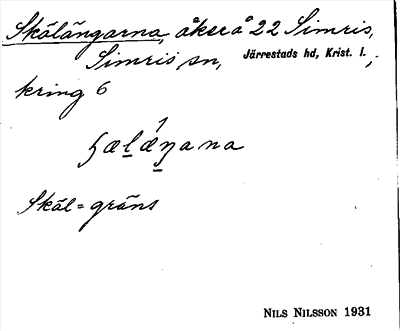 Skälängarna, åkrar å 22 Simris,
Simris sn, Järrestads hd, Krist. l.,
kring 6
Skäl = gräns
NILS NILSSON 1931